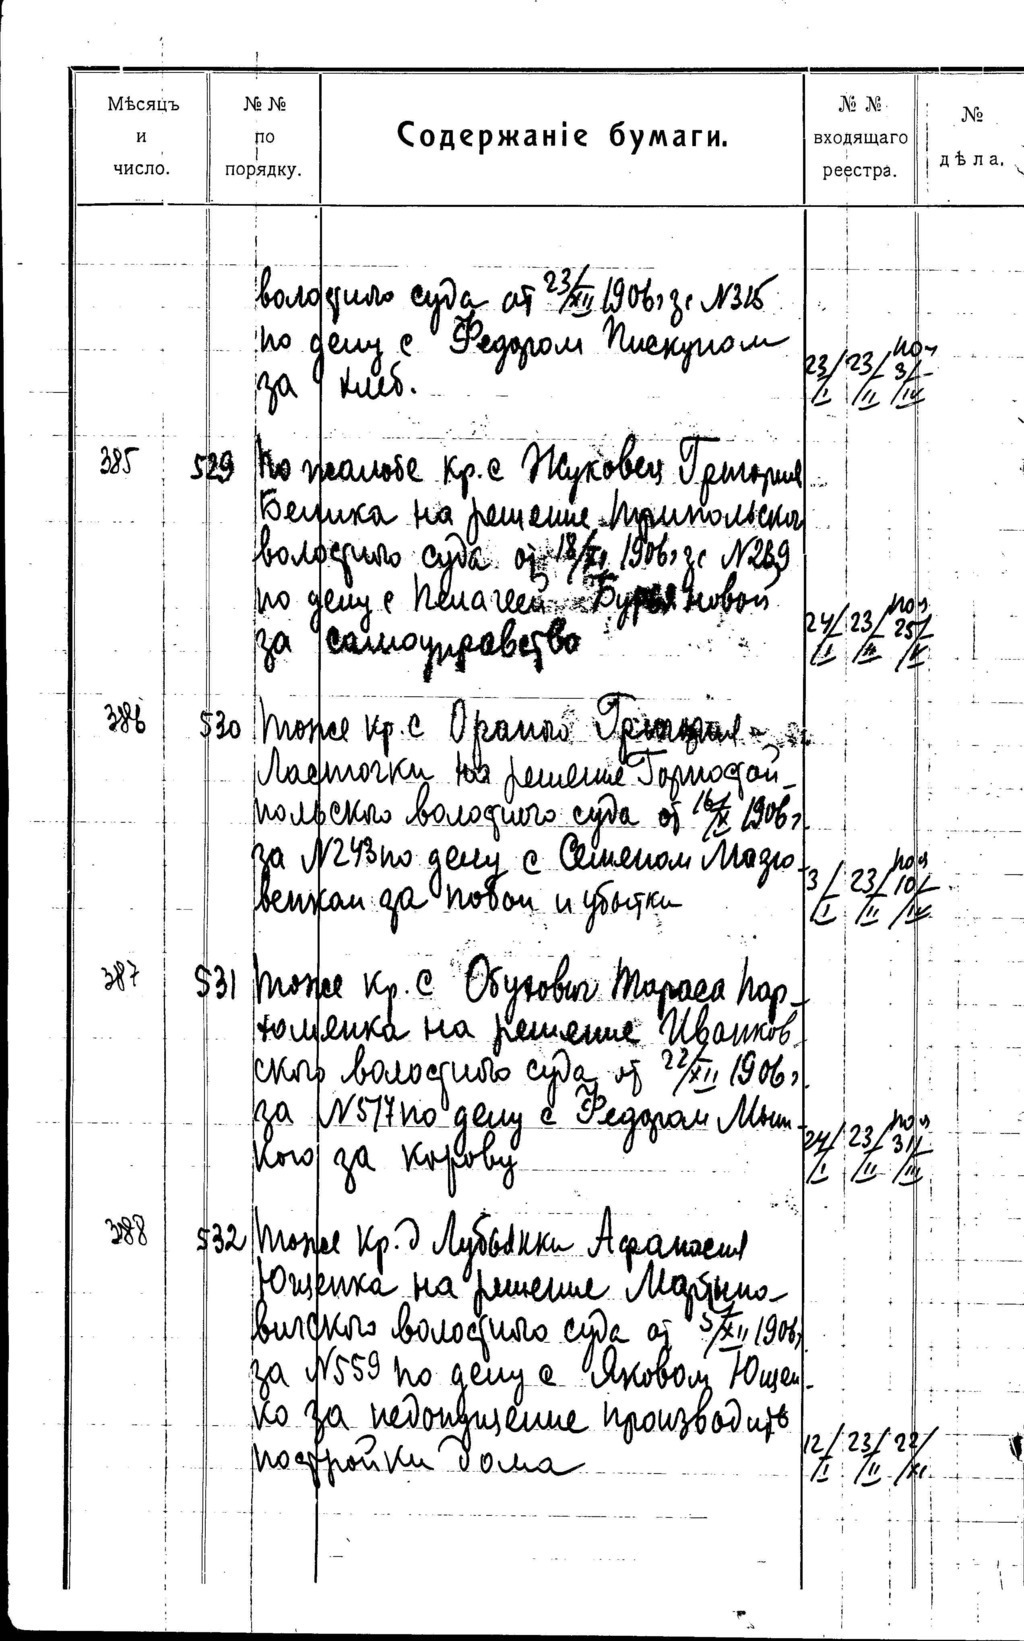 Мѣсяцъ и число.
№ № по порядку.
Содержаніе бумаги.
№ № входящаго реестра.
№ дѣла.
волостного суда от 23/XII 1906 г за N315
по делу с Федором Пискуном
за хлеб.
23/I 23/II 3/IV
385 529 По жалобе кр. с Жуковец Григория
Белика на решение Трипольского
волостного суда от 18/XI 1906 г за N269
по делу с Пелагеей Бурьяновой
за самоуправство
24/I 23/II 25/V
386 530 тоже кр. с Ораного Григория
Ласточки на решение Горностай-
польского волостного суда от 16/X 1906 г
за N243 по делу с Семеном Мазю-
венком за побои и убытки
3/I 23/II 10/IV
387 531 тоже кр. с Обухович Тараса Пар-
хоменка на решение Иванков
ского волостного суда от 22/XII 1906 г
за N517 по делу с Федором
за корову
24/I 23/II 31/III
388 532 тоже кр. д Лубянки Афанасия
Ющенка на решение Мартыно-
вичского волостного суда от 5/XII 1906 г
за N559 по делу с Яковом Ющен-
ко за недопущение производить
постройки дома
12/I 23/II 22/XI